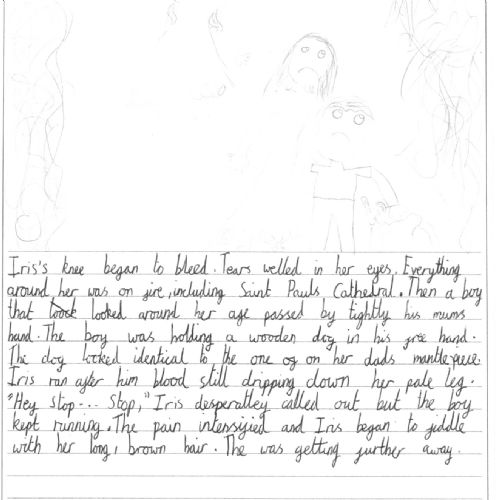 Iris's knee began to bleed. Tears welled in her eyes. Everything
around her was on fire, including Saint Pauls Cathedral. Then a boy
that looked around her age passed by tightly his mums
hand. The boy was holding a wooden dog in his free hand.
The dog looked identical to the one og on her dads mantlepiece.
Iris ran after him blood still dripping down her pale leg.
"Hey stop--- Stop," Iris desperatley called out but the boy
kept running. The pain intensified and Iris began to fiddle
with her long, brown hair. The was getting further away.